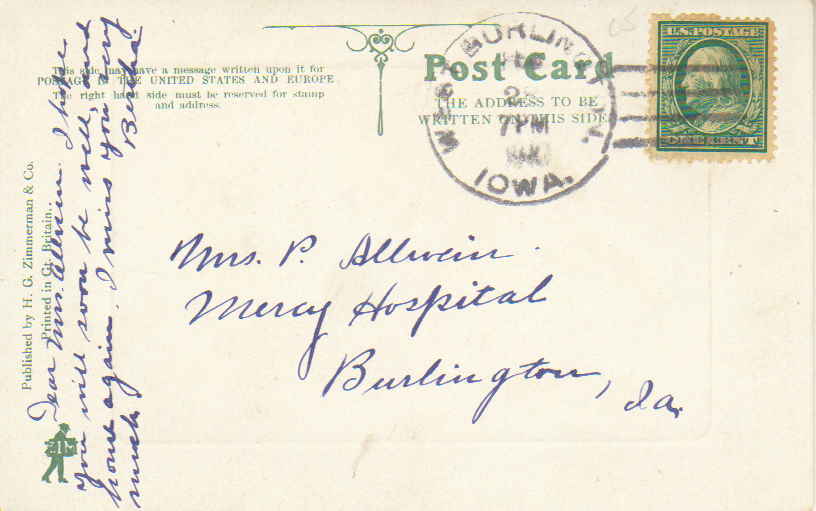 This side may have a message written upon it for
POSTAGE IN THE UNITED STATES AND EUROPE
The right hand side must be reserved for stamp
and address.
Post Card
THE ADDRESS TO BE
WRITTEN ON THIS SIDE
WEST BURLINGTON,
2
7 PM
IOWA.
U.S. POSTAGE
ONE CENT 1
Mrs. P. Allwein
Mercy Hospital
Burlington, Ia.
Dear Mrs. Allwein. I hope
you will soon be well, and
home again. I miss you very
much.
Bertha.
Published by H. G. Zimmerman & Co.
Printed in Gt. Britain.
ZIM